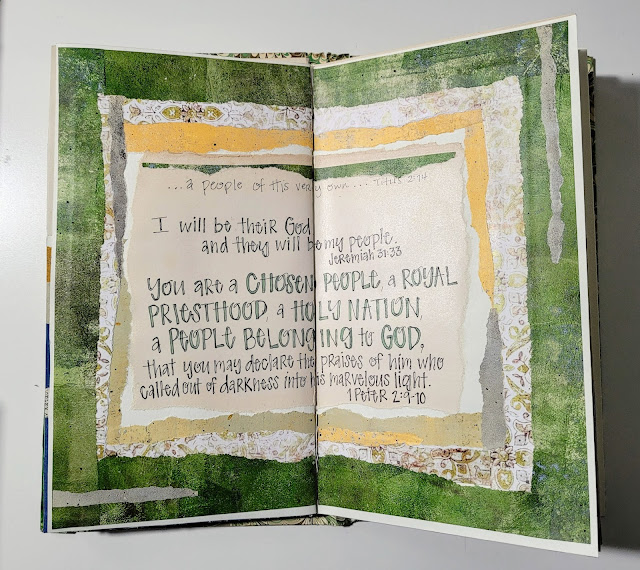 ...a people of His very own... Titus 2:14
I will be their God
and they will be my people.
Jeremiah 31:33
You are a CHOSEN PEOPLE, a ROYAL
PRIESTHOOD, a HOLY NATION,
a PEOPLE BELONGING to GOD,
that you may declare the praises of him who
called out of darkness into his marvelous light.
1 Peter 2:9-10